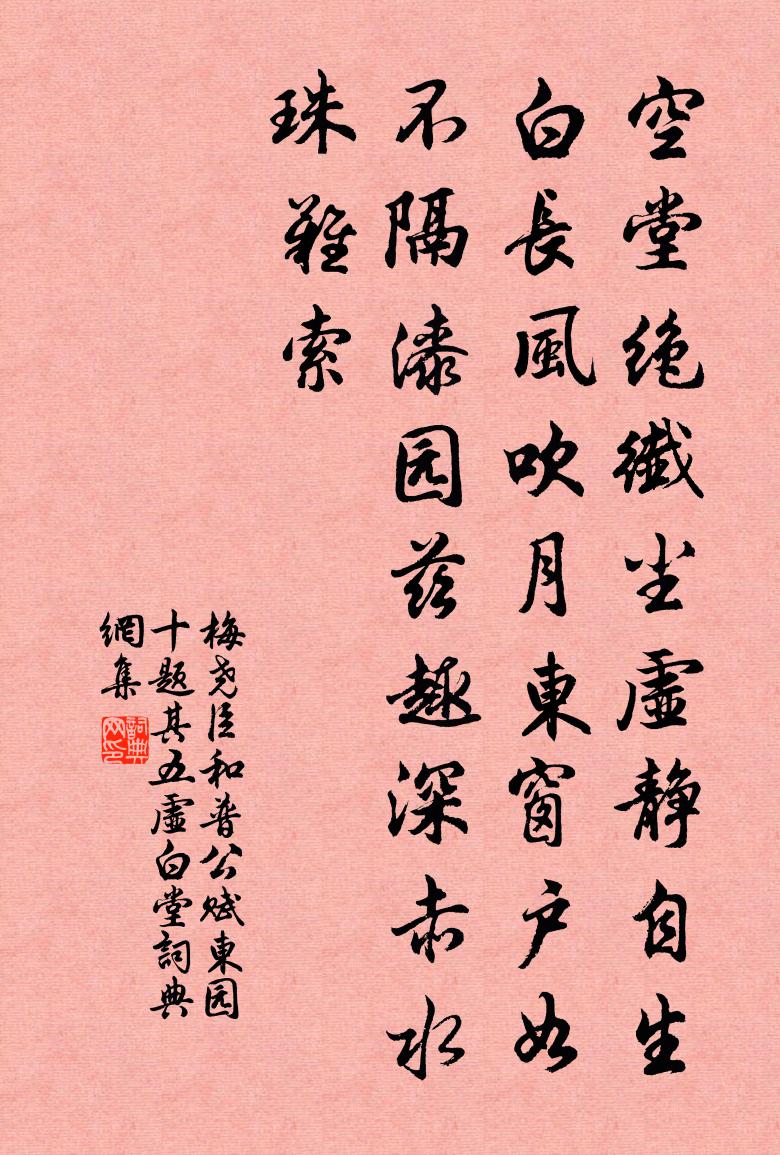 空堂绝纖尘虚静自生
白長風吹月東窗户如
不隔漆园兹趣深赤水
珠難索
梅尧臣和普公赋東园
十题其五虚白堂詞典
網集
詞典网印